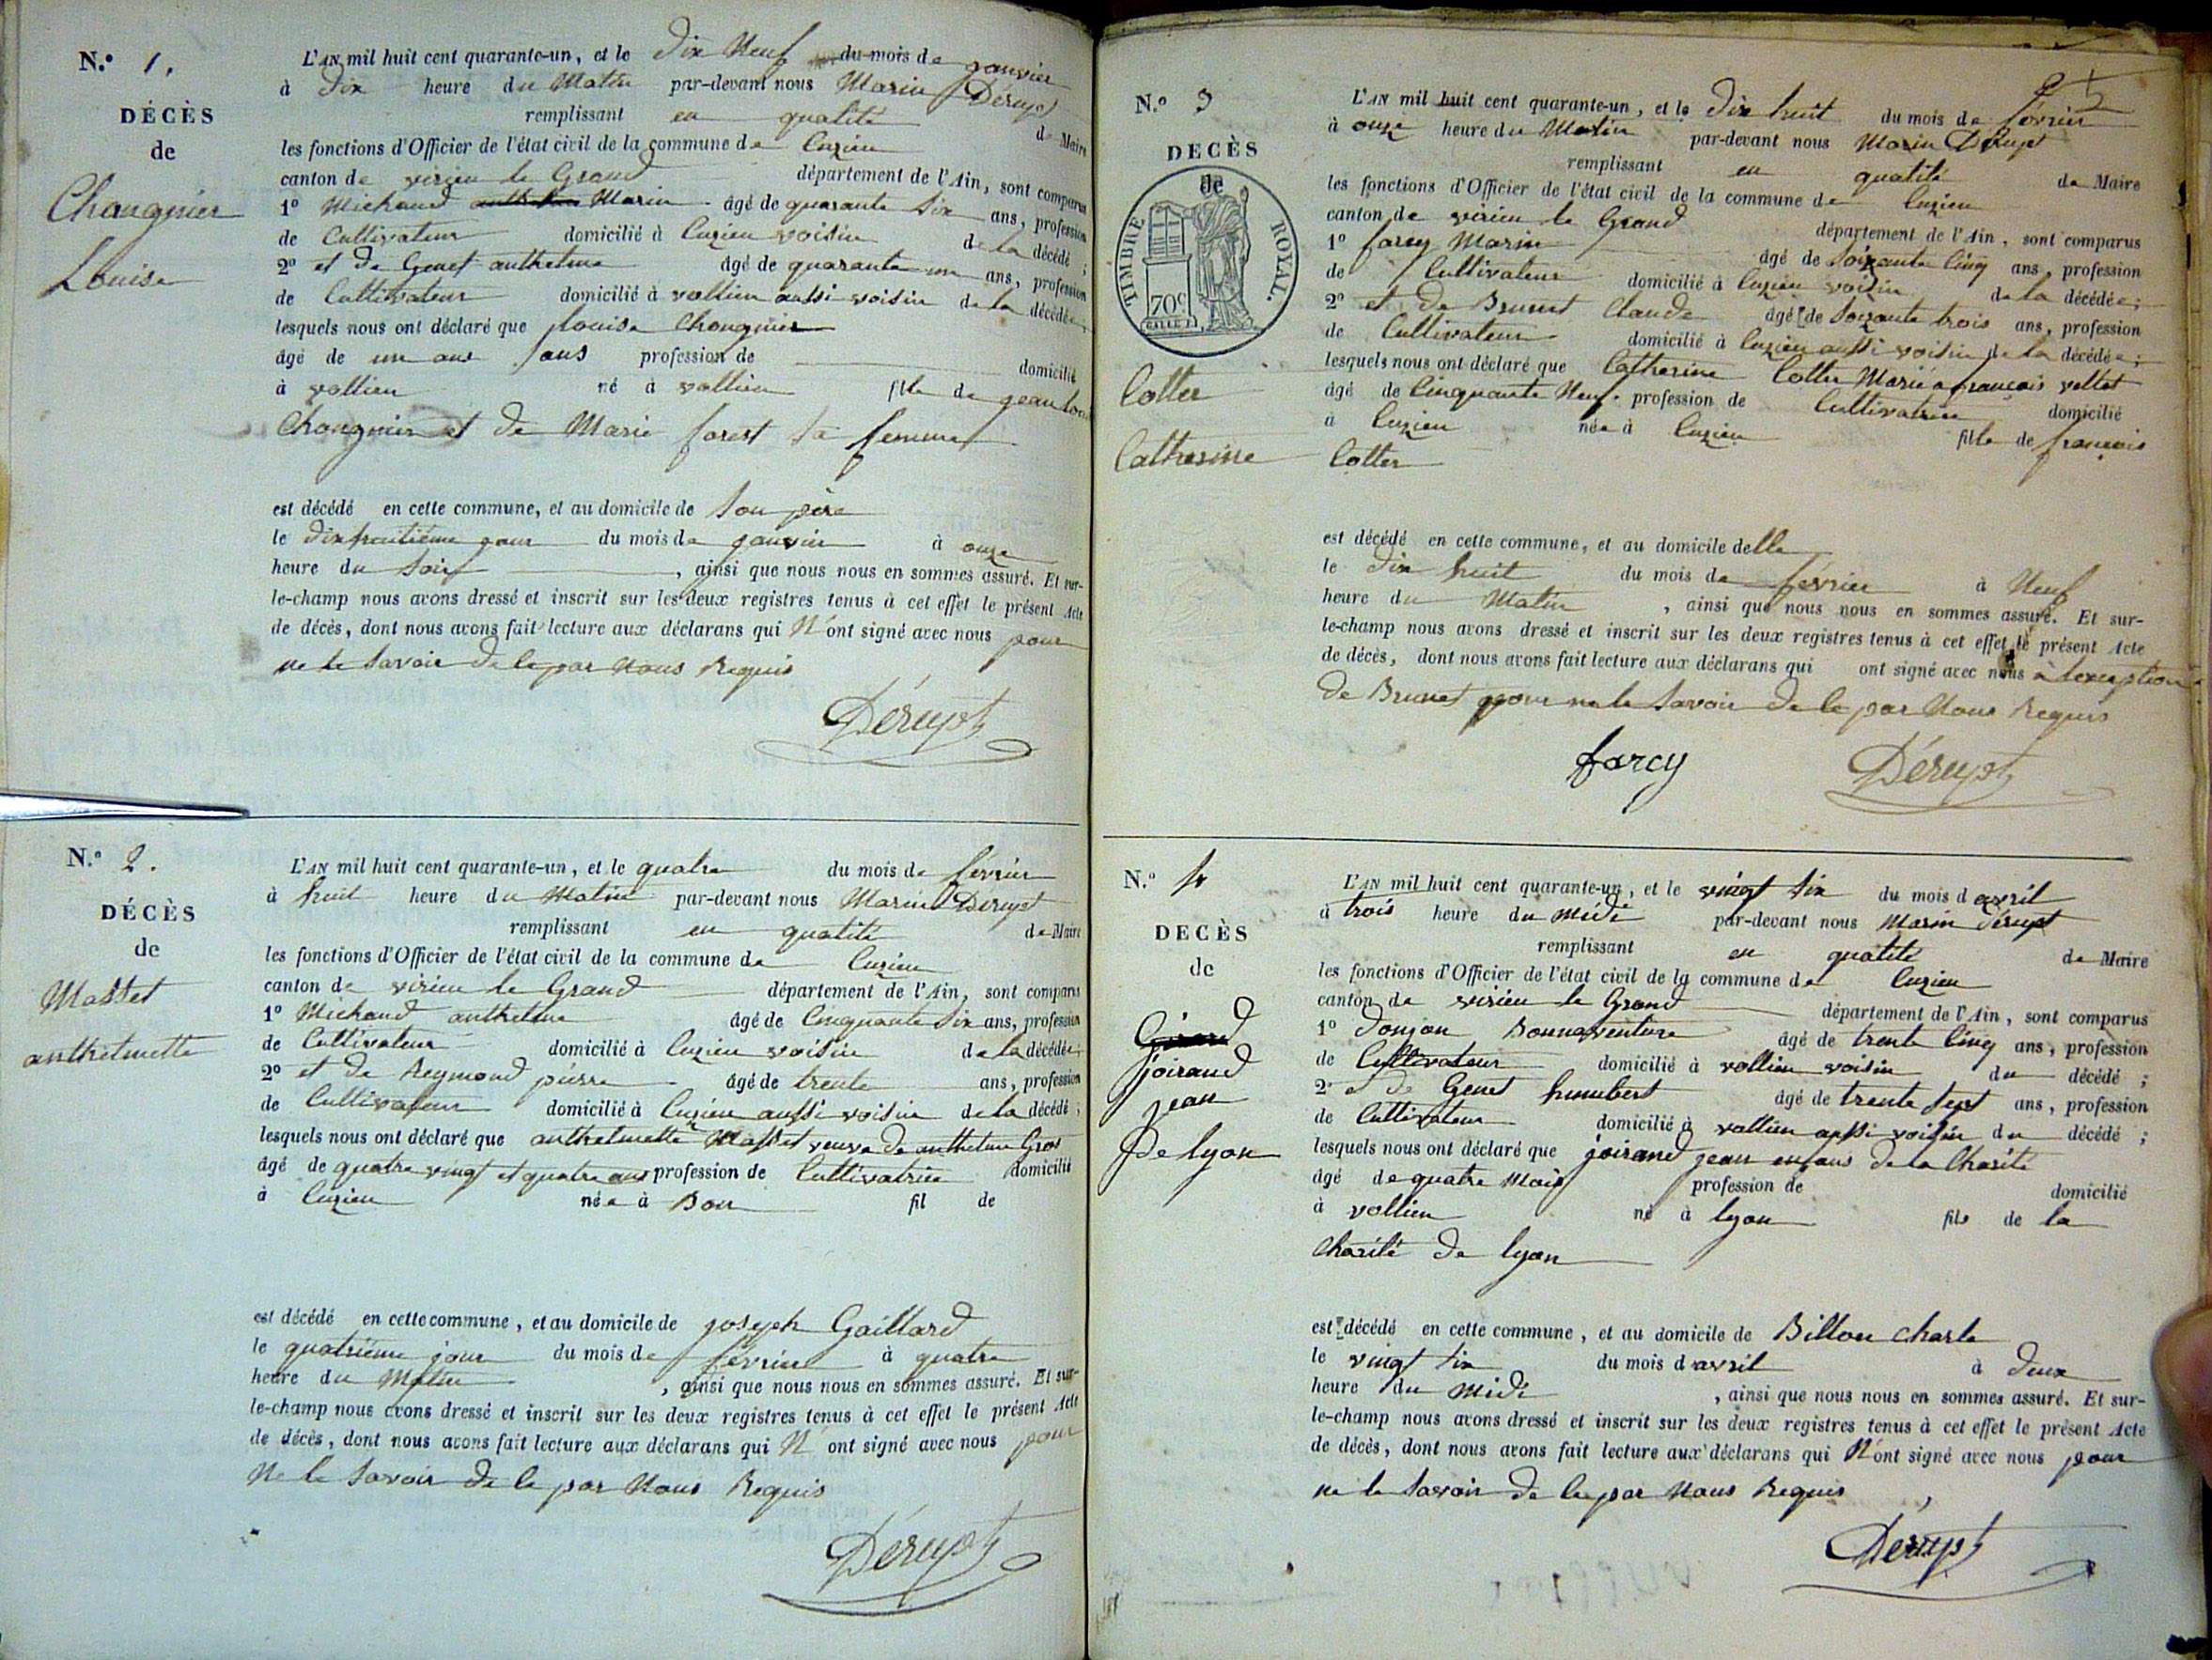 N.° 1.
DÉCÈS
de
Changnier
Louise
L'AN mil huit cent quarante-un, et le dix Neuf du mois de janvier
à dix heure du Matin par-devant nous Marin Dérupt
remplissant en qualité de Maire
les fonctions d'Officier de l'état civil de la commune de Cuzieu
canton de virieu le Grand département de l'Ain, sont comparus
1° Michaud Marin âgé de quarante six ans, profession
de Cultivateur domicilié à Cuzieu voisin de la décédé ;
2° et de Genet anthelme âgé de quarante un ans, profession
de Cultivateur domicilié à vollien aussi voisin de la décédée ;
lesquels nous ont déclaré que Louise Changnier
âgé de un ans sans profession de domicilié
à vollien né à vollien fille de jean
Changnier et de Marie forest sa femme
est décédé en cette commune, et au domicile de son père
le dixhuitième jour du mois de janvier à onze
heure du soir , ainsi que nous nous en sommes assuré. Et sur-
le-champ nous avons dressé et inscrit sur les deux registres tenus à cet effet le présent Acte
de décès, dont nous avons fait lecture aux déclarans qui N'ont signé avec nous pour
ne le savoir de ce par Nous Requis
Dérupt
N.° 2.
DÉCÈS
de
Masset
anthelmette
L'AN mil huit cent quarante-un, et le quatre du mois de février
à huit heure du Matin par-devant nous Marin Dérupt
remplissant en qualité de Maire
les fonctions d'Officier de l'état civil de la commune de Cuzieu
canton de virieu le Grand département de l'Ain, sont comparus
1° Michaud anthelme âgé de Cinquante six ans, profession
de Cultivateur domicilié à Cuzieu voisin de la décédée ;
2° et de Reymond pierre âgé de trente ans, profession
de Cultivateur domicilié à Cuzieu aussi voisin de la décédé ;
lesquels nous ont déclaré que anthelmette Masset veuve de anthelme Gros
âgé de quatre vingt et quatre ans profession de Cultivatrice domicilié
à Cuzieu née à Bon fil de
est décédé en cette commune, et au domicile de joseph Gaillard
le quatrième jour du mois de février à quatre
heure du Matin , ainsi que nous nous en sommes assuré. Et sur-
le-champ nous avons dressé et inscrit sur les deux registres tenus à cet effet le présent Acte
de décès, dont nous avons fait lecture aux déclarans qui N'ont signé avec nous pour
Ne le savoir de ce par Nous Requis
Dérupt
N.° 3
DECÈS
de
TIMBRE ROYAL.
70c
Cotter
Catherine
L'AN mil huit cent quarante-un, et le dix huit du mois de février
à onze heure du Matin par-devant nous Marin Dérupt
remplissant en qualité de Maire
les fonctions d'Officier de l'état civil de la commune de Cuzieu
canton de virieu le Grand département de l'Ain, sont comparus
1° farcy Marin âgé de soixante Cinq ans, profession
de Cultivateur domicilié à Cuzieu voisin de la décédée ;
2° et de Brunet Claude âgé de soixante trois ans, profession
de Cultivateur domicilié à Cuzieu aussi voisin de la décédée ;
lesquels nous ont déclaré que Catherine Cotter Marié a français vellet
âgé de Cinquante Neuf profession de Cultivatrice domicilié
à Cuzieu née à Cuzieu fille de français
Cotter
est décédé en cette commune, et au domicile delle
le dix huit du mois de février à Neuf
heure du Matin , ainsi que nous nous en sommes assuré. Et sur-
le-champ nous avons dressé et inscrit sur les deux registres tenus à cet effet le présent Acte
de décès, dont nous avons fait lecture aux déclarans qui ont signé avec nous à lexception
de Brunet pour ne le savoir de ce par Nous Requis
farcy
Dérupt
N.° 4
DECÈS
de
joirand
jean
De lyon
L'AN mil huit cent quarante-un, et le vingt six du mois d avril
à trois heure du midi par-devant nous Marin Dérupt
remplissant en qualité de Maire
les fonctions d'Officier de l'état civil de la commune de Cuzieu
canton de virieu le Grand département de l'Ain, sont comparus
1° donjon Bonnaventure âgé de trente Cinq ans, profession
de Cultivateur domicilié à vollien voisin du décédé ;
2° et de Genet humbert âgé de trente sept ans, profession
de Cultivateur domicilié à vollien aussi voisin du décédé ;
lesquels nous ont déclaré que joirand jean enfans de la Charité
âgé de quatre Mois profession de domicilié
à vollien né à lyon fils de la
Charité de lyon
est décédé en cette commune, et au domicile de Billon Charle
le vingt six du mois d avril à deux
heure du midi , ainsi que nous nous en sommes assuré. Et sur-
le-champ nous avons dressé et inscrit sur les deux registres tenus à cet effet le présent Acte
de décès, dont nous avons fait lecture aux déclarans qui N'ont signé avec nous pour
ne le savoir de ce par Nous Requis
Dérupt